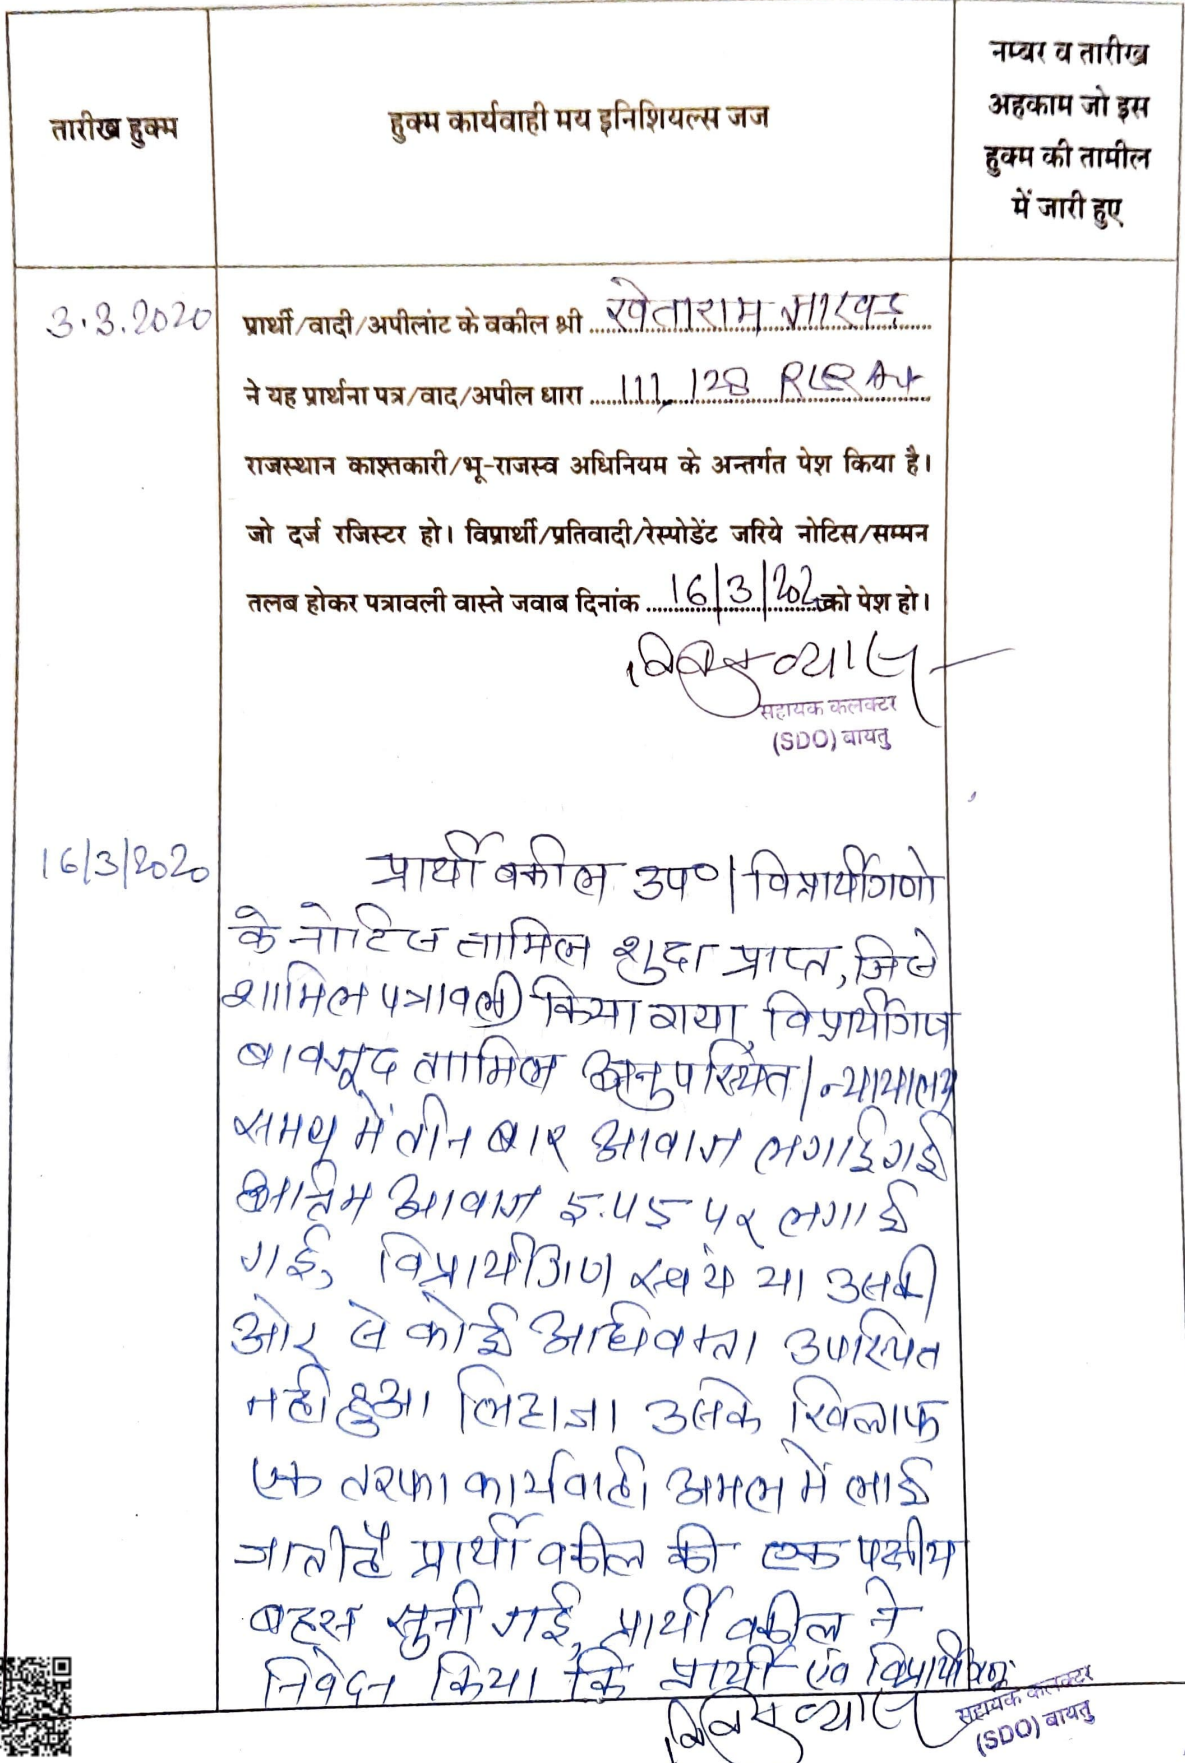 तारीख हुक्म
हुक्म कार्यवाही मय इनिशियल्स जज
नम्बर व तारीख
अहकाम जो इस
हुक्म की तामील
में जारी हुए
3.3.2020
प्रार्थी/वादी/अपीलांट के वकील श्री खेताराम
ने यह प्रार्थना पत्र/वाद/अपील धारा 111, 128 RLR Act
राजस्थान काश्तकारी/भू-राजस्व अधिनियम के अन्तर्गत पेश किया है।
जो दर्ज रजिस्टर हो। विप्रार्थी/प्रतिवादी/रेस्पोडेंट जरिये नोटिस/सम्मन
तलब होकर पत्रावली वास्ते जवाब दिनांक 16/3/202 को पेश हो।
व्यास
सहायक कलक्टर
(SDO) बायतु
16/3/2020
प्रार्थी वकील उप०। विप्रार्थीगणो
के नोटिस तामिल शुदा प्राप्त, जिसे
शामिल पत्रावली किया गया, विप्रार्थीगण
बावजूद तामिल अनुपस्थित। न्यायालय
समय में तीन बार आवाज लगाई गई
अन्तिम आवाज 5.45 पर लगाई
गई, विप्रार्थीगण स्वयं या उसकी
ओर से कोई अधिवक्ता उपस्थित
नही हुआ लिहाजा उसके खिलाफ
एक तरफा कार्यवाही अमल में लाई
जाती है प्रार्थी वकील की एक पक्षीय
बहस सुनी गई, प्रार्थी वकील ने
निवेदन किया कि प्रार्थी एंव
व्यास
सहायक कलक्टर
(SDO) बायतु